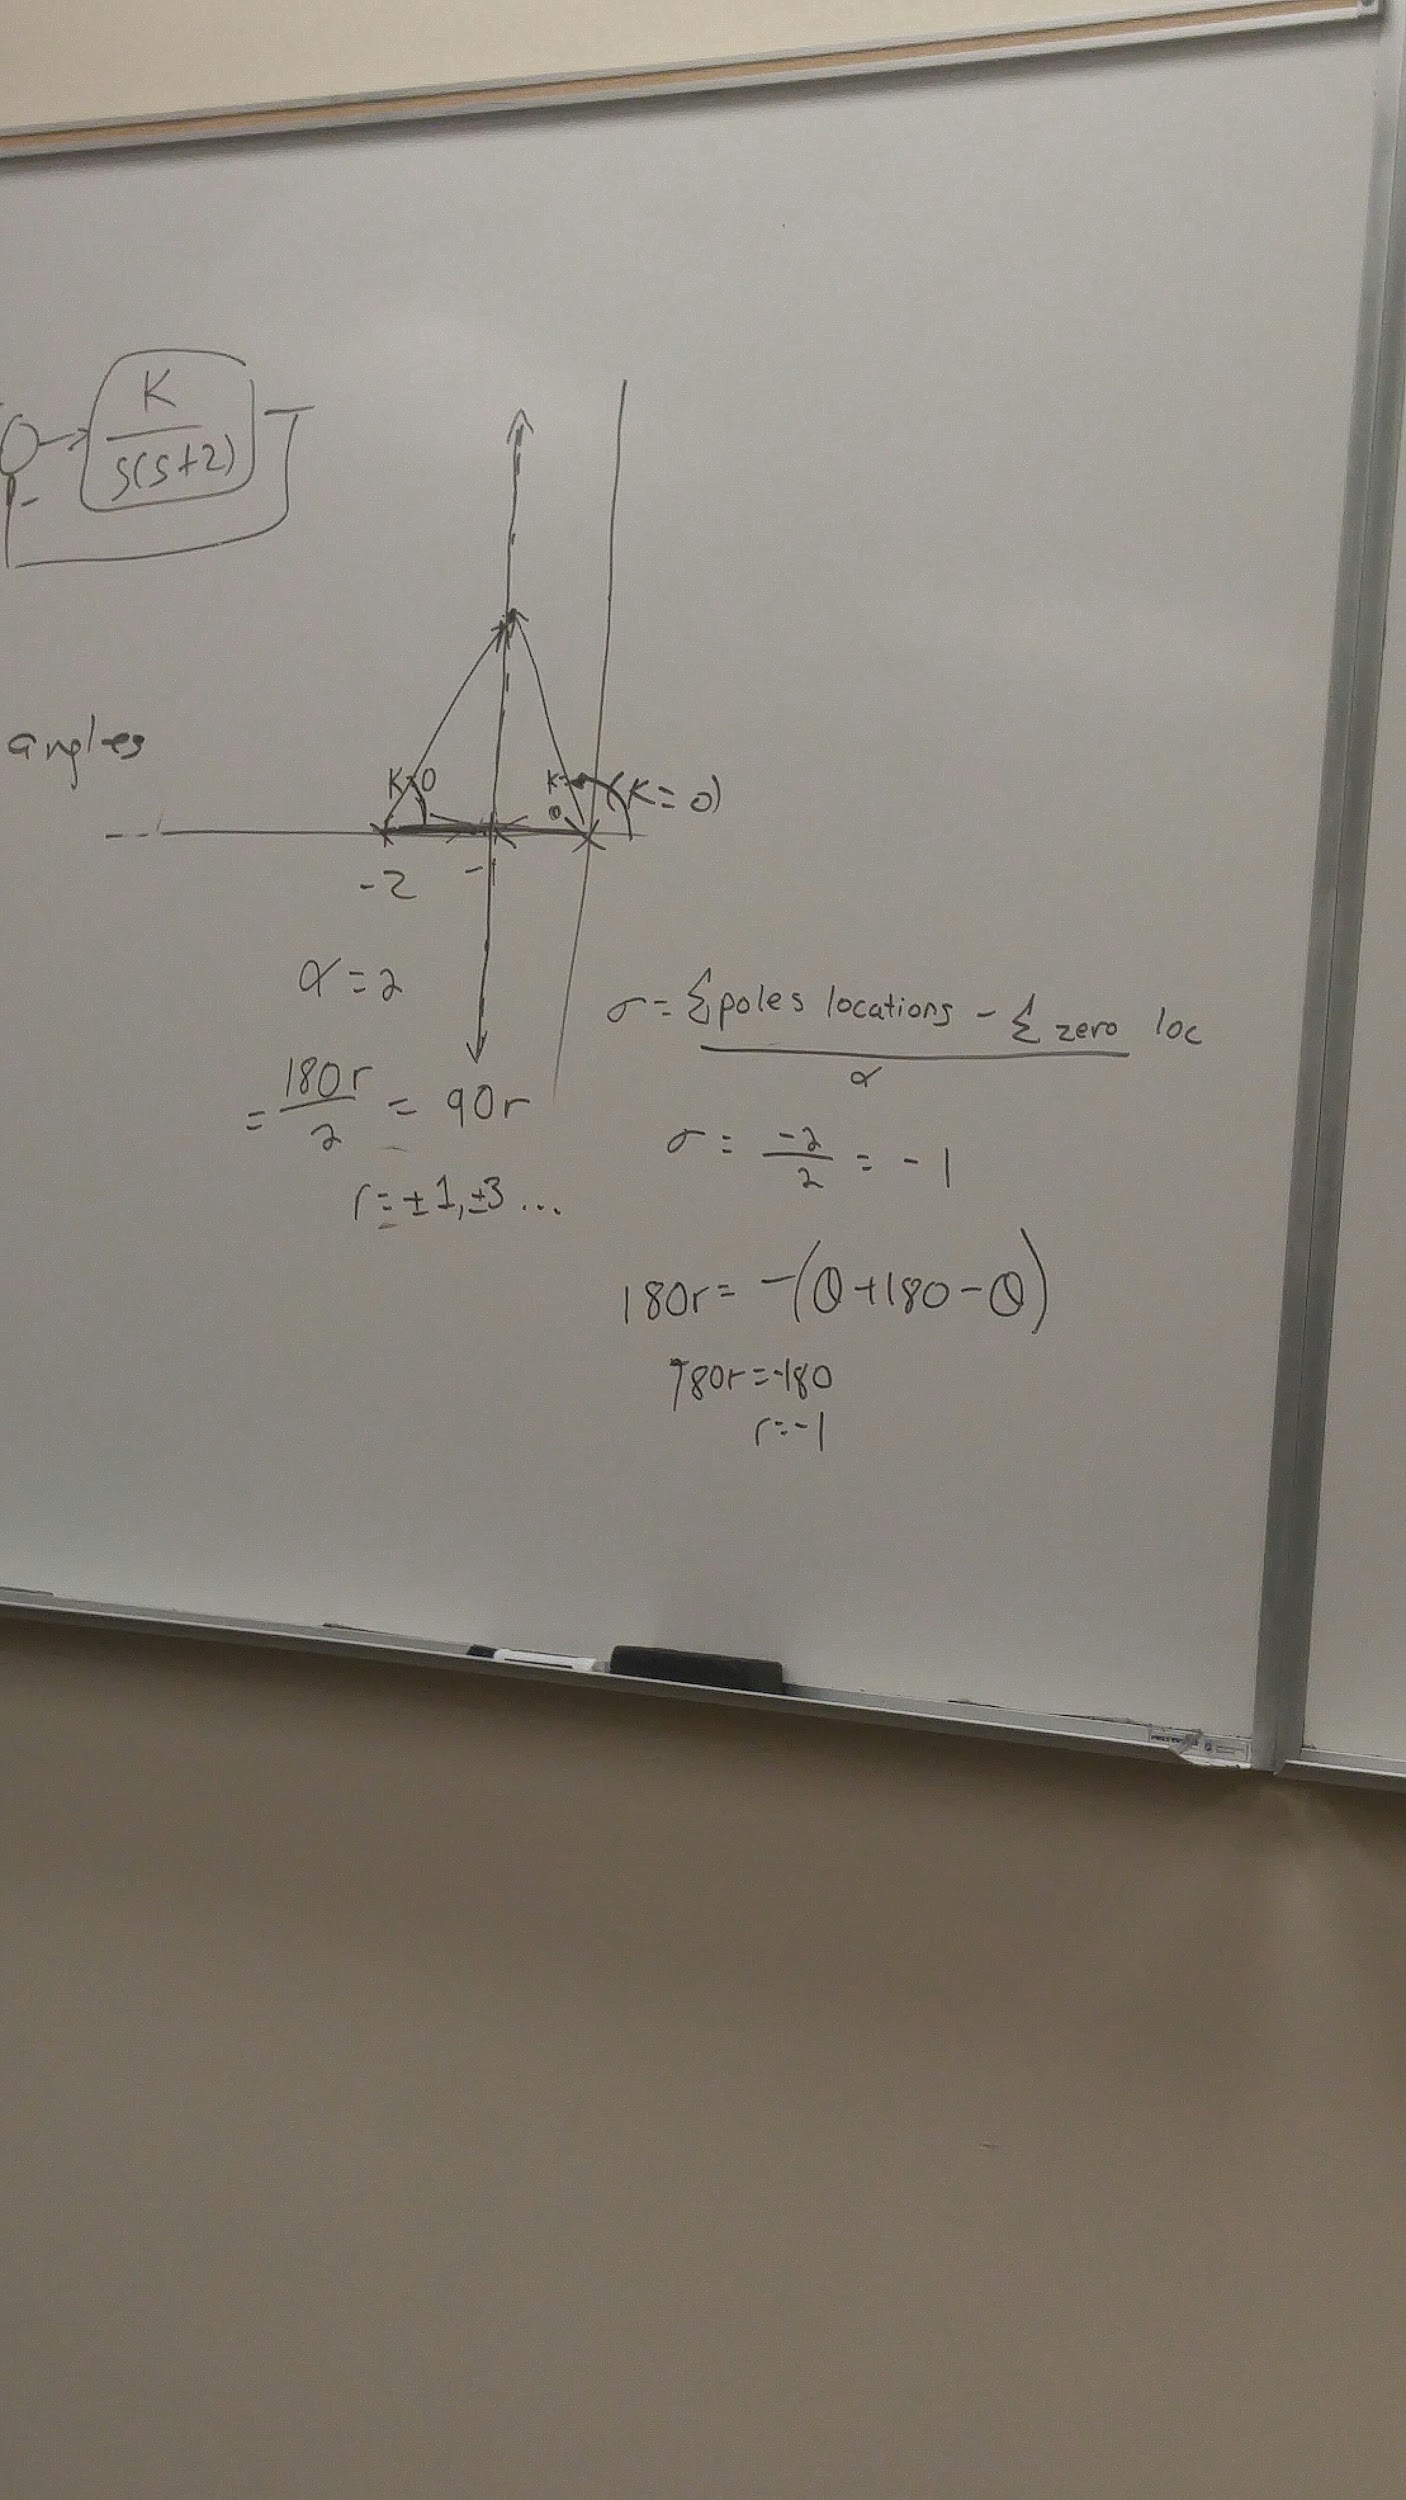 K
s(s+2)
-
angles
K=0
K=
0
(K=0)
-2
-1
α=2
= 180r / 2 = 90r
r=±1,±3...
σ= Σpoles locations - Σ zero loc
α
σ = -2 / 2 = -1
180r= -(θ+180-θ)
180r=-180
r=-1